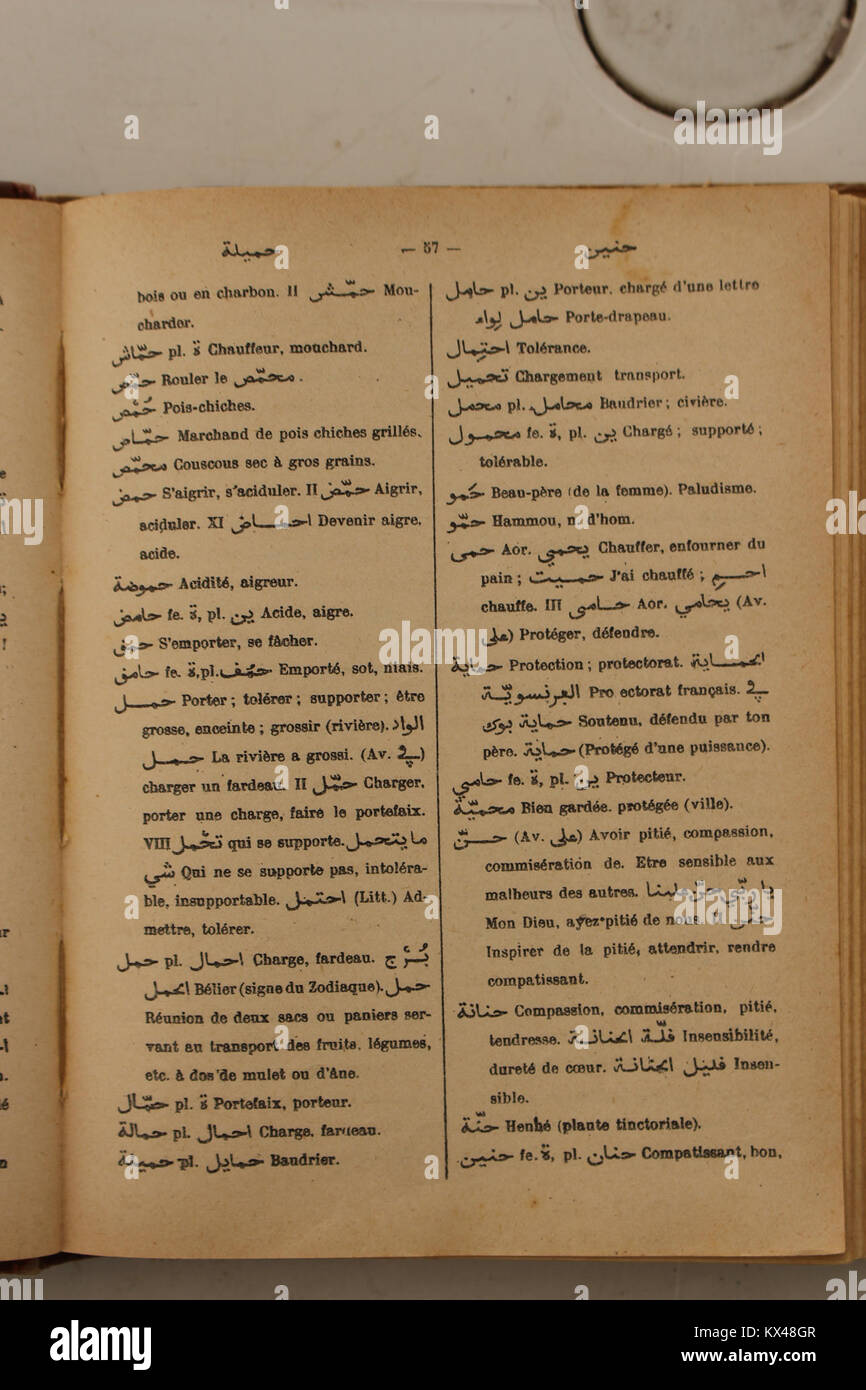 حميلة — 57 — حنين
bois ou en charbon. II حمّش Mou-
charder.
حمّاش pl. ة Chauffeur, mouchard.
حمّص Rouler le محمّص.
حُمُّص Pois-chiches.
حمّاص Marchand de pois chiches grillés.
محمّص Couscous sec à gros grains.
حمض S'aigrir, s'aciduler. II حمّض Aigrir,
aciduler. XI احماض Devenir aigre,
acide.
حموضة Acidité, aigreur.
حامض fe. ة, pl. ين Acide, aigre.
حمق S'emporter, se fâcher.
حامق fe. ة, pl. Emporté, sot, niais.
حمل Porter; tolérer; supporter; être
grosse, enceinte; grossir (rivière). الواد
حمل La rivière a grossi. (Av. في)
charger un fardeau. II حمّل Charger,
porter une charge, faire le portefaix.
VIII تحْمل qui se supporte. ما يتحمل
شي Qui ne se supporte pas, intoléra-
ble, insupportable. احتمل (Litt.) Ad-
mettre, tolérer.
حمل pl. احمال Charge, fardeau. بُرْج
الحمل Bélier (signe du Zodiaque). حمل
Réunion de deux sacs ou paniers ser-
vant au transport des fruits, légumes,
etc. à dos de mulet ou d'âne.
حمّال pl. ة Portefaix, porteur.
حمالة pl. احمال Charge, fardeau.
حميلة pl. حمايل Baudrier.
حامل pl. ين Porteur, chargé d'une lettre
حامل لواء Porte-drapeau.
احتمال Tolérance.
تحميل Chargement transport.
محمل pl. محامل Baudrier; civière.
محمول fe. ة, pl. ين Chargé; supporté;
tolérable.
حمو Beau-père (de la femme). Paludisme.
حمّو Hammou, n. d'hom.
حمى Aor. يحمي Chauffer, enfourner du
pain; حميت J'ai chauffé; احم
chauffe. III حامى Aor. يحامي (Av.
على) Protéger, défendre.
حماية Protection; protectorat. الحماية
الفرنسويّة Pro ectorat français. في
حماية بوك Soutenu, défendu par ton
père. حماية (Protégé d'une puissance).
حامي fe. ة, pl. ين Protecteur.
محميّة Bien gardée, protégée (ville).
حنّ (Av. على) Avoir pitié, compassion,
commisération de. Etre sensible aux
malheurs des autres. يا ربّي حنّ علينا
Mon Dieu, ayez pitié de nous. II حنّن
Inspirer de la pitié, attendrir, rendre
compatissant.
حنانة Compassion, commisération, pitié,
tendresse. قلّة الحنانة Insensibilité,
dureté de cœur. قليل الحنانة Insen-
sible.
حنّة Henné (plante tinctoriale).
حنين fe. ة, pl. حنان Compatissant, bon,
alamy
Image ID: KX48GR
www.alamy.com